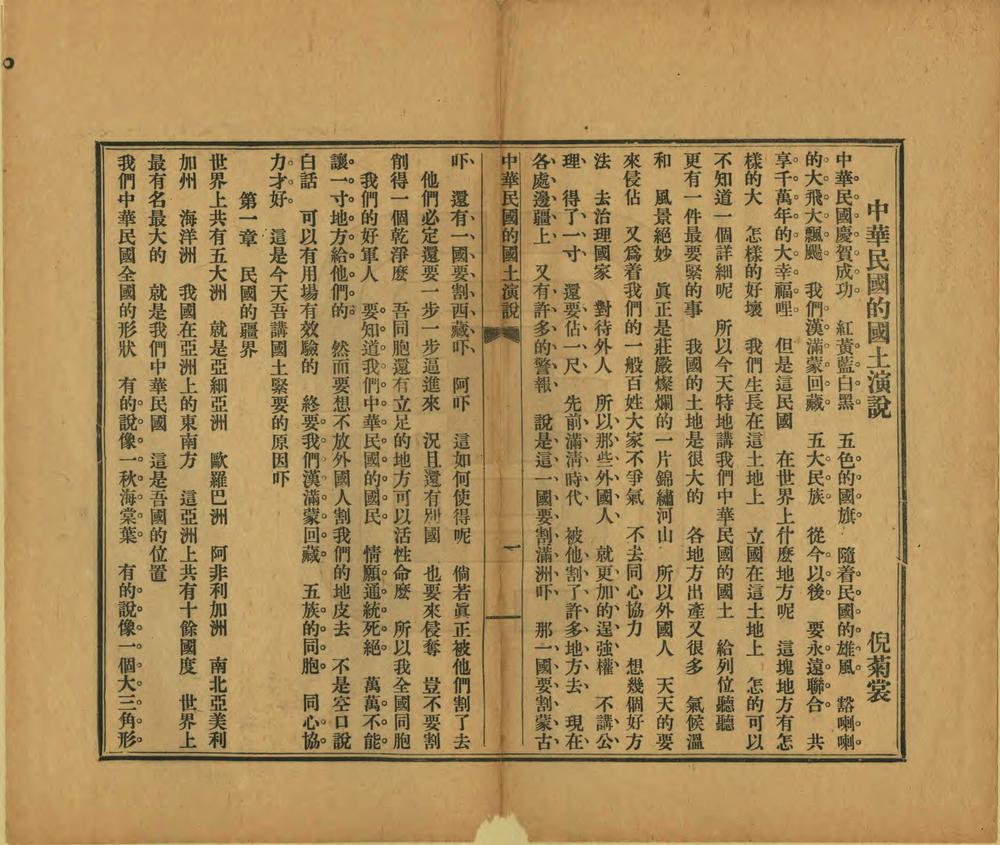 中華民國的國土演說　倪菊裳
中華民國慶賀成功　紅黃藍白黑　五色的國旗　隨着民國的雄風　豁喇喇
的大飛大飄颺　我們漢滿蒙回藏　五大民族　從今以後　要永遠聯合　共
享千萬年的大幸福哩　但是這民國　在世界上什麽地方呢　這塊地方有怎
樣的大　怎樣的好壞　我們生長在這土地上　立國在這土地上　怎的可以
不知道一個詳細呢　所以今天特地講我們中華民國的國土　給列位聽聽
更有一件最要緊的事　我國的土地是很大的　各地方出產又很多　氣候溫
和　風景絕妙　眞正是莊嚴燦爛的一片錦繡河山　所以外國人　天天的要
來侵佔　又爲着我們的一般百姓大家不爭氣　不去同心協力　想幾個好方
法　去治理國家　對待外人　所以那些外國人　就更加的逞強權　不講公
理　得了一寸　還要佔一尺　先前滿淸時代　被他割了許多地方去　現在
各處邊疆上　又有許多的警報　說是這一國要割滿洲吓　那一國要割蒙古
中華民國的國土演說　一
吓　還有一國要割西藏吓　阿吓　這如何使得呢　倘若眞正被他們割了去
他們必定還要一步一步逼進來　况且還有別國　也要來侵奪　豈不要割
削得一個乾淨麽　吾同胞還有立足的地方可以活性命麽　所以我全國同胞
我們的好軍人　要知道我們中華民國的國民　情願通統死絕　萬萬不能
讓一寸地方給他們的　然而要想不放外國人割我們的地皮去　不是空口說
白話　可以有用場有效驗的　終要我們漢滿蒙回藏　五族的同胞　同心協
力才好　這是今天吾講國土緊要的原因吓
第一章　民國的疆界
世界上共有五大洲　就是亞細亞洲　歐羅巴洲　阿非利加洲　南北亞美利
加州　海洋洲　我國在亞洲上的東南方　這亞洲上共有十餘國度　世界上
最有名最大的　就是我們中華民國　這是吾國的位置
我們中華民國全國的形狀　有的說像一秋海棠葉　有的說像一個大三角形